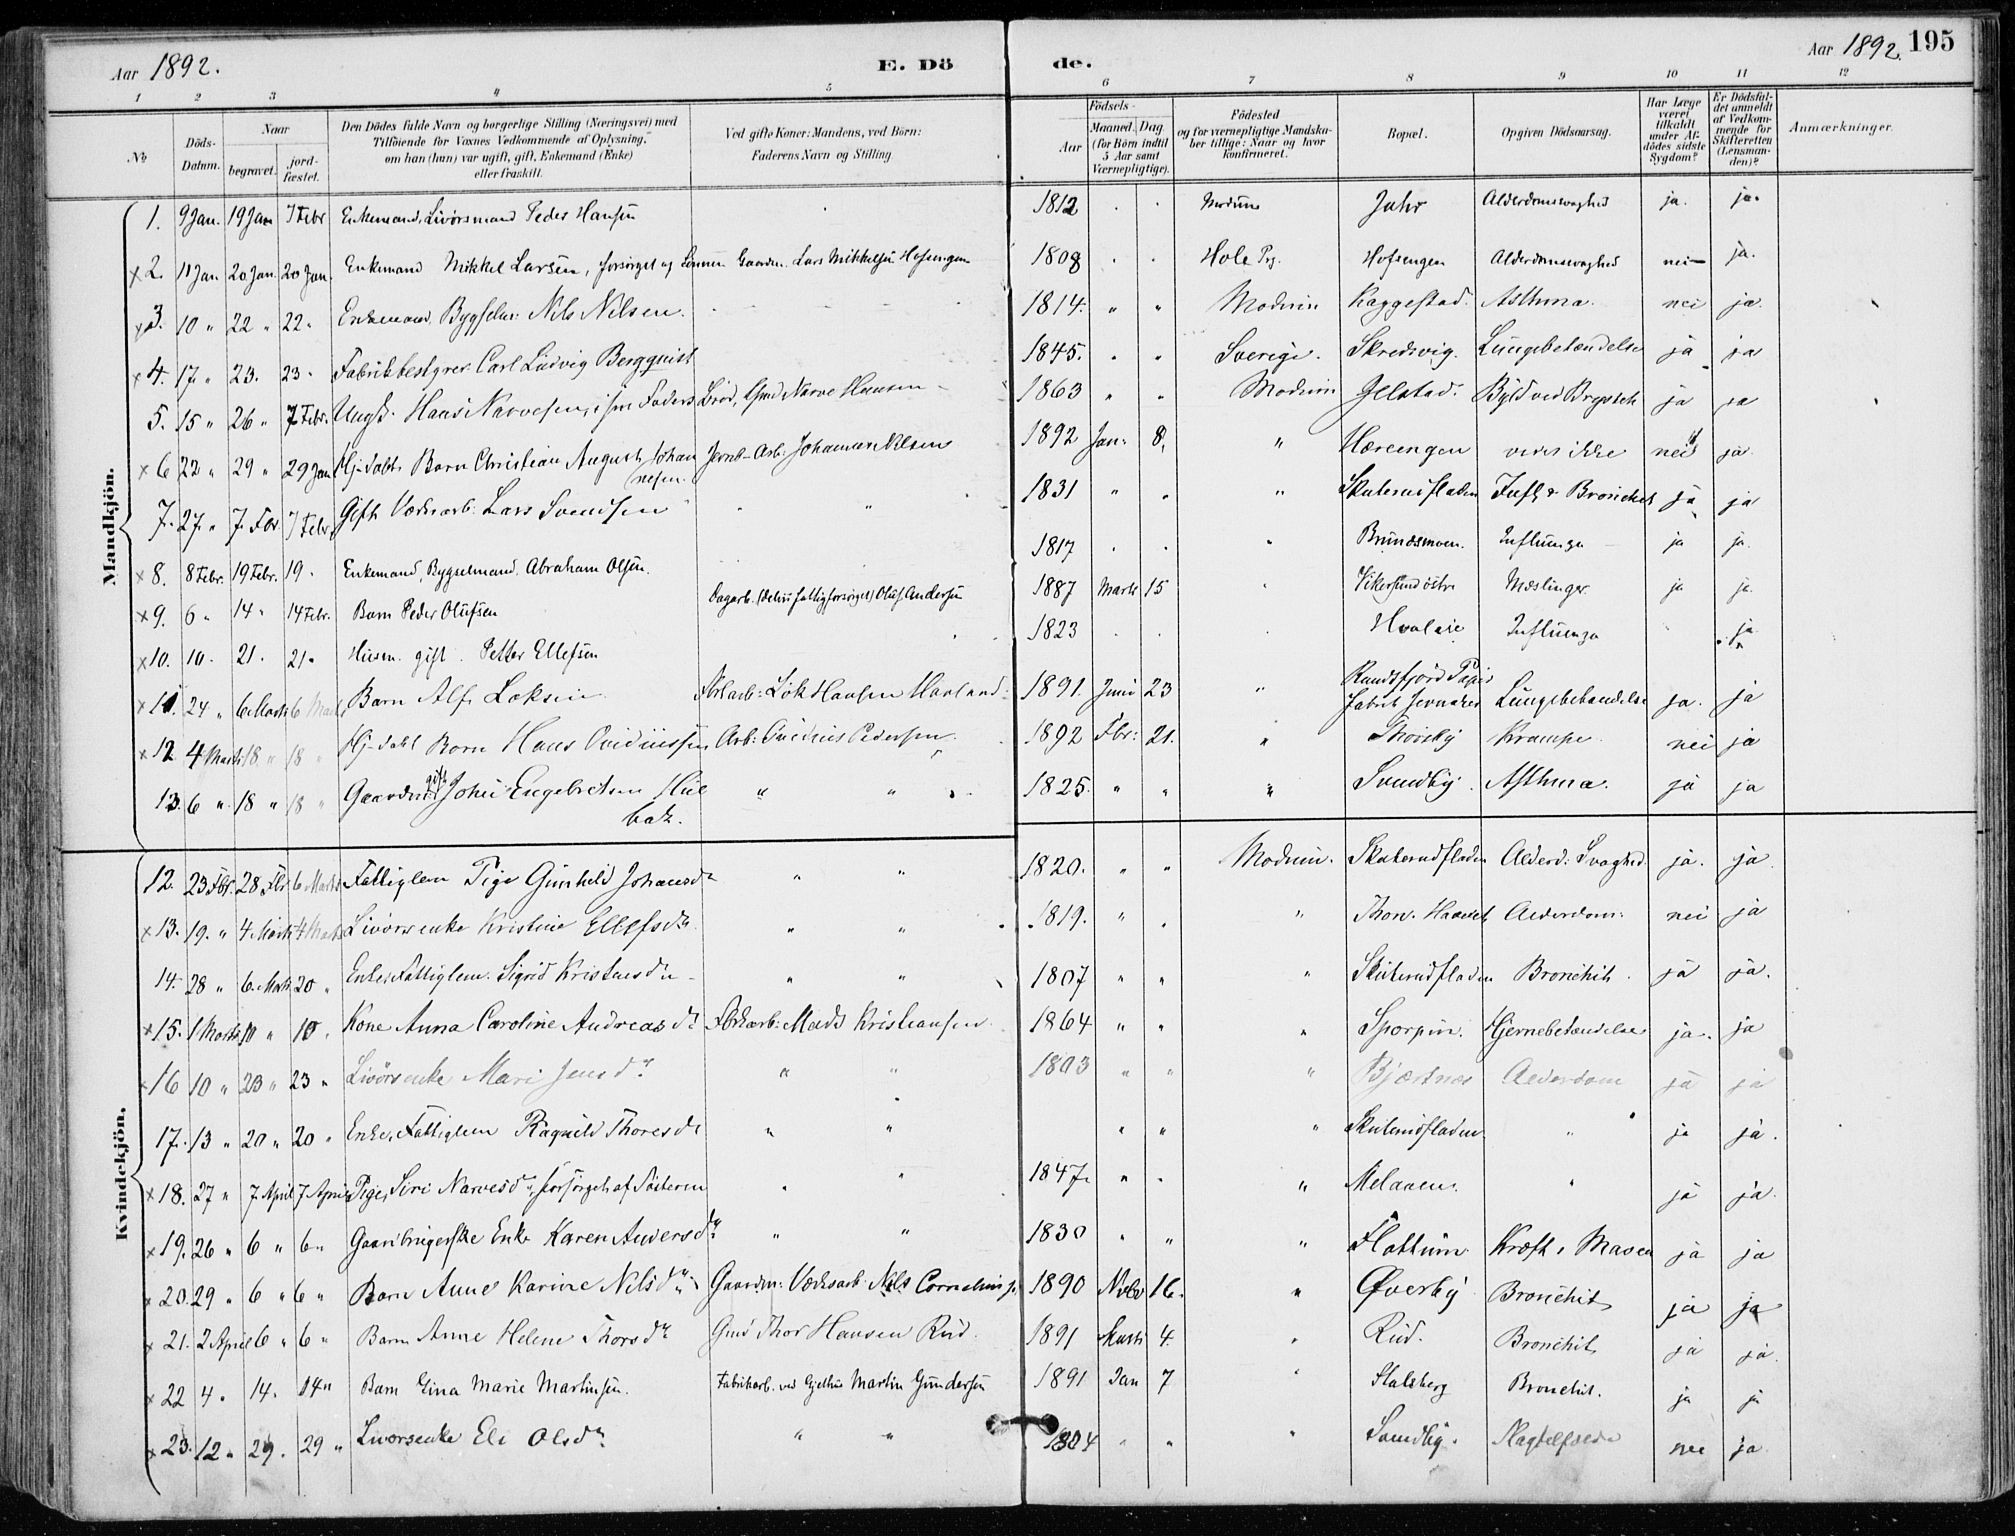 Aar 1892. E. Dö de. Aar 1892. 195
1 2 3 4 5 6 7 8 9 10 11 12
No
Döds-Datum.
Naar
begravet.
jordfæstet.
Den Dödes fulde Navn og borgerlige Stilling (Næringsvei) med
Tilföiende for Voxnes Vedkommende af Oplysning,
om han (hun) var ugift, gift, Enkemand (Enke)
eller fraskilt.
Ved gifte Koner: Mandens, ved Börn:
Faderens Navn og Stilling.
Födsels-
Aar
Maaned. Dag.
(for Börn indtil
5 Aar samt
Værnepligtige).
Födested
og for værnepligtige Mandskaber tillige: Naar og hvor
konfirmeret.
Bopæl.
Opgiven Dödsaarsag.
Har Læge
været
tilkaldt
under Afdödes sidste
Sygdom?
Er Dödsfaldet anmeldt
af Vedkommende for
Skifteretten
(Lensmanden)?
Anmærkninger.
Mandkjön.
1. 9 Jan. 19 Jan 7 Febr Enkemand, Livörsmand Peder Hansen 1812 . . Modum Jahr Alderdomssvaghed ja. ja.
x 2. 11 Jan 20 Jan. 20 Jan. Enkemand Mikkel Larsen, forsörget af Sönnen Gaardm. Lars Mikkelsen Hofsengen 1808 . . Hole Pg. Hofsengen Alderdomssvaghed nei ja.
x 3. 10 " 22 " 22 " Enkemand, Bygselm: Nils Nilsen. 1814. " " Modum Kaggestad. Asthma. nei ja.
x 4. 17 " 23. 23 " Fabrikbestyrer Carl Ludvig Bergquist 1845. " " Sverige. Skredsvig. Lungebetændelse ja ja
5. 15 " 26 " 7 Febr. Ungk. Hans Narvesen, i sin Faders Bröd, Gmd Narve Hansen 1863 " " Modum Gjelstad. Byld ved Brystet ja ja
x 6 22 " 29 " 29 Jan Hj-döbt Barn Christian August Johannesen. Jernb-Arb: Johannes Nilsen 1892 Jan: 8. " Hæreengen vides ikke nei ja.
7. 27. " 7. Fbr 7 Febr. Gift Værksarb: Lars Svendsen " " 1831 " " " Skuterudfladen Inft & Bronchit ja ja
x 8. 8 Febr. 19 Febr. 19. Enkemand, Bygselmand, Abraham Olsen. 1817 . . " Brunesmoen. Influenza ja ja.
x 9. 6 " 14 " 14 Febr. Barn Peder Olufsen Dagarb. (delvis fattigforsörget) Oluf Andersen 1887 Marts 15 " Vikersund östre Mæslinger ja ja.
x 10. 10. 21. 21. Husm. gift. Petter Ellefsen 1823 . . . Hvalsie Influenza ja
x 11. 24 " 6 Marts 6 Marts Barn Alf Loksen Fbrkarb: Lok Hansen Haaland: 1891. Juni 23 " Randsfjord Papir Fabrik Jevnaker Lungebetændelse ja. ja
x 12 4 Marts 18 " 18 " Hj-döbt Barn Hans Ovidiussen Arb: Ovidius Pedersen. 1892 Fbr: 21. " Thorsby Krampe nei ja
13. 6 " 18 " 18 " Gaardmd gift John Engebretsen Hiebak. " " 1825. " " " Svendby. Asthma. ja ja
Kvindekjön.
12. 23 Fbr. 28 Fbr 6 Marts Fattiglem Pige Gunhild Johansdr " " 1820. " " Modum. Skuterudfladen Alderd: Svaghed. ja. ja.
x 13. 19. " 4. Marts 4 Marts Livörsenke Kristine Ellefsdr. " " 1819. " " " Thon. Alderdom. nei ja
14. 28 " 6. Marts 20 " Enke, Fattiglem. Sigrid Kristensdr " " 1807 " " " Skuterudfladen Bronchit. ja ja.
x 15. 1 Marts 10 " 10 " Kone Anna Caroline Andreasdr Fbrkarb: Mads Kristiansen 1864 " " " Sporpin. Hjernebetændelse ja. ja
x 16 10 " 23 " 23 " Livörsenke Mari Jensdr. " " 1803 " " " Bjærtnes Alderdom ja ja
17. 13 " 20 " 20 " Enke, Fattiglem Ragnild Thoresdr " " " " " Skuterudfladen. " ja ja.
x 18. 27 " 7 April 7 April Pige, Siri Narvesdr, forsörget af Sösteren " " 1847. " " " Melaaen. " ja ja.
x 19. 26 " 6 " 6 " Gaardbrugerske Enke Karen Andersdr. " " 1830 " " " Flattum Kræft i Maven ja ja
x 20. 29 " 6 " 6 " Barn Anne Karine Nilsdr. Gaardm: Værksarb. Nils Corneliuss. 1890 Nvbr 16. " Øverby Bronchit ja ja
x 21. 2 April 6 " 6 " Barn Anne Helene Thorsdr. Gmd Thor Hansen Rud. 1891 Marts 4. " Rud. Bronchit ja ja.
x 22 4 " 14. 14 " Barn Gina Marie Martinsen. Fabrikarb. ved Gjethus Martin Gundersen 1891 Jan 7 " Stalsberg Bronchit. ja ja
x 23. 12 " 29. 29 " Livörsenke Eli Olsdr. " " 1804 " " " Svendby. nei ja.